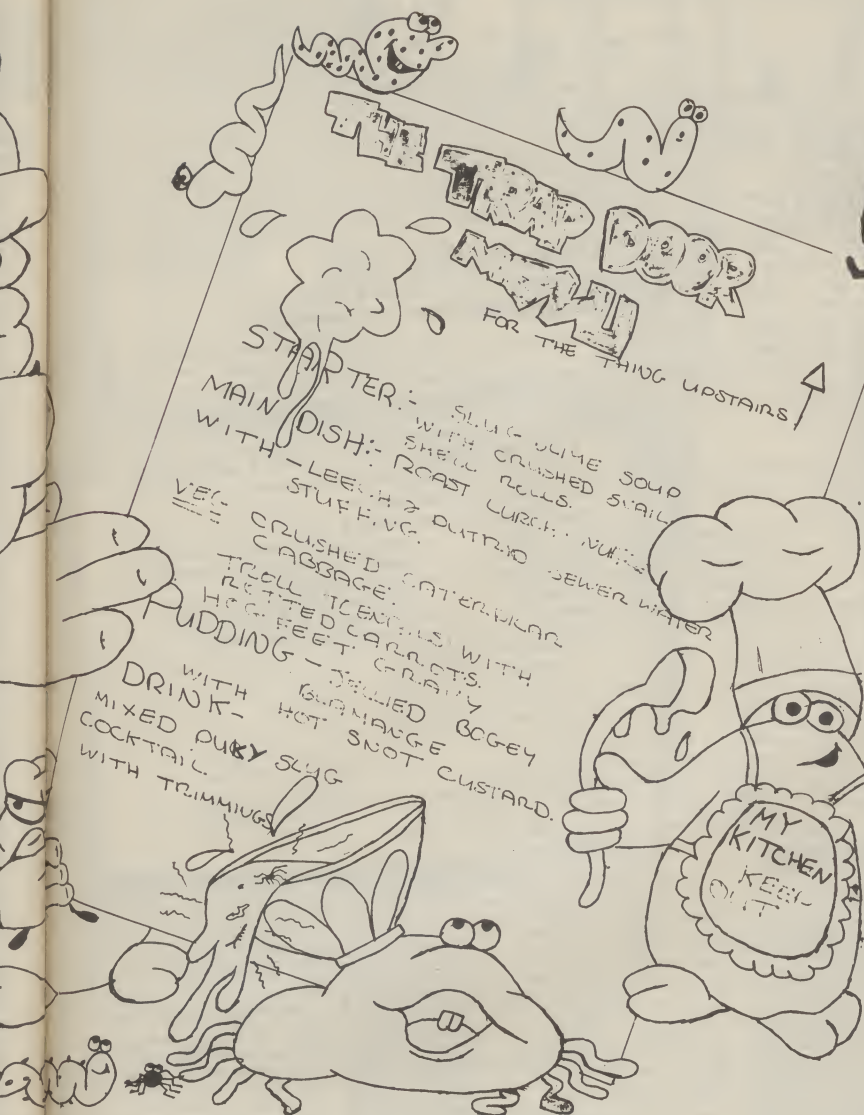 THE
TRAP DOOR
MENU
FOR THE THING UPSTAIRS
STARTER:- SLUG SLIME SOUP
WITH CRUSHED SNAIL
SHELL ROLLS.
MAIN DISH:- ROAST
WITH - LEECH & PUTRID SEWER WATER
STUFFING.
VEG CRUSHED CATERPILLAR
CABBAGE.
TROLL WITH
ROTTED CARROTS.
HOG FEET GRAVY
PUDDING - JELLIED BOGEY
BLAMANGE
WITH HOT SNOT CUSTARD.
DRINK-
MIXED PUKY SLUG
COCKTAIL.
WITH TRIMMINGS
MY
KITCHEN
KEEP
OUT